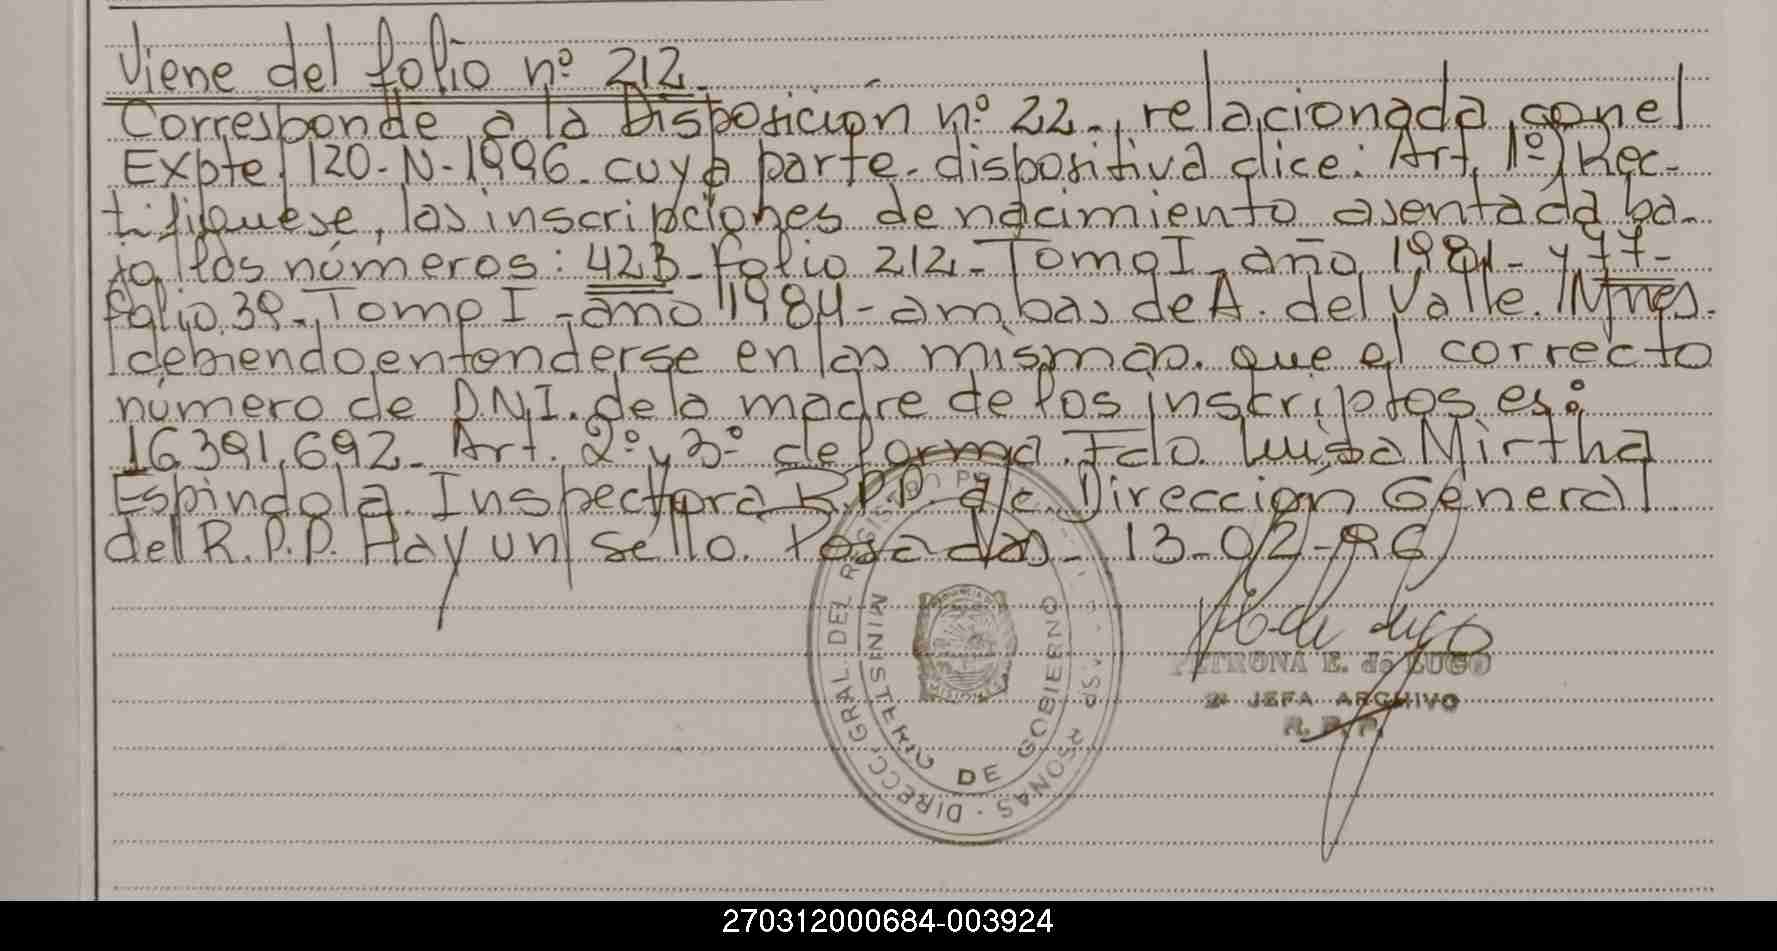 Viene del folio nº 212.
Corresponde a la Disposición nº 22-, relacionada con el
Expte. 120-N-1996. cuya parte. dispositiva dice: Art. 1º) Rec-
tifiquese, las inscripciones de nacimiento asentada ba-
jo los números: 423- folio 212- Tomo I- año 1981- y 77-
folio 39- Tomo I - año 1984- ambas de A. del Valle. Mnes.
debiendo entenderse en las mismas. que el correcto
número de D.N.I. de la madre de los inscriptos es:
16.391.692- Art. 2º y 3º de forma. Fdo. Luisa Mirtha
Espindola. Inspectora R.P.P. a/c. Dirección General
del R.P.P. Hay un sello. Posadas- 13-02-96
DIRECC. GRAL. DEL REGIST
PERSONAS
MINISTERIO DE GOBIERNO
MISIONES
PETRONA E. de LUGO
JEFA ARCHIVO
R. P. P.
270312000684-003924